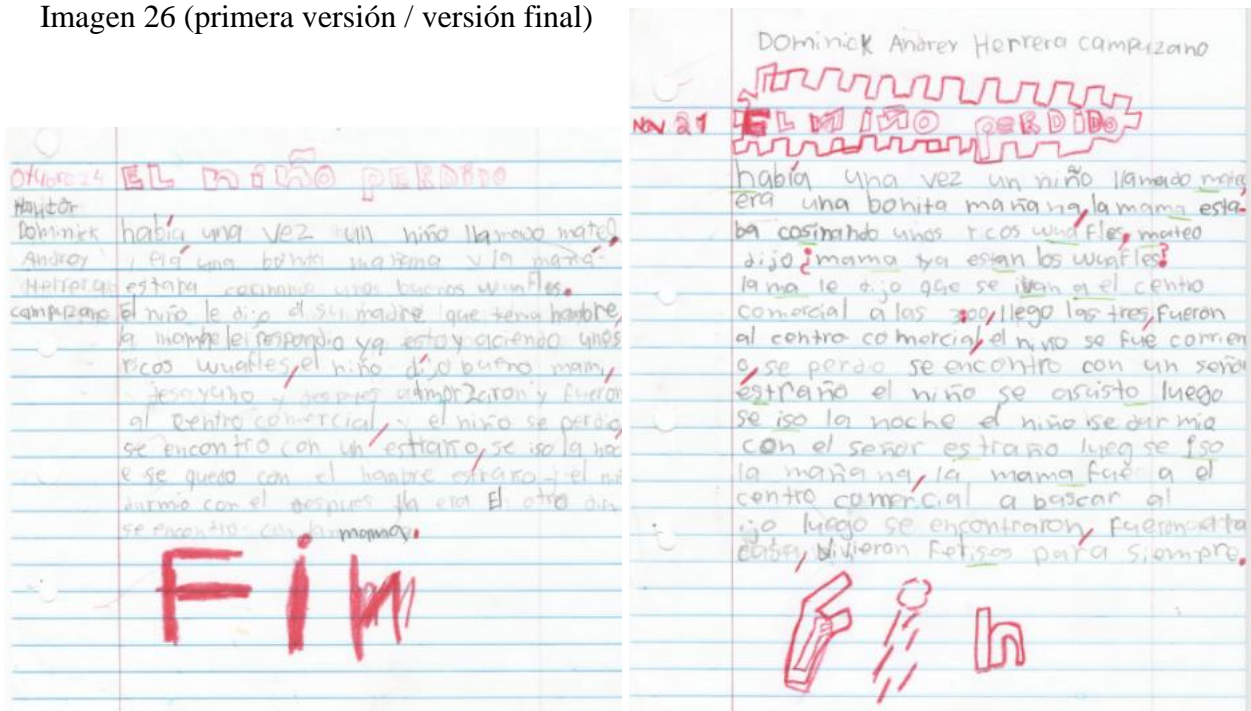 Imagen 26 (primera versión / versión final)
Octubre 24 EL niño PERDIDO
Dominick había una vez un niño llamado mateo,
Andrey era una bonita mañana y la mamá
Herrera estaba cosinando unos buenos wuafles.
campuzano el niño le dijo a su madre que tenia hambre,
la mamá le respondio ya estoy aciendo unos
ricos wuafles, el niño dijo bueno mami,
desayuno y despues almorzaron y fueron
al centro comercial y el niño se perdio
se encontro con un estraño, se iso la noc
e se quedo con el hombre estraño y el ni
durmio con el despues ya era El otro dia
se encontro con mama.
Fin
Dominick Andrey Herrera campuzano
Nov 21 EL niño perdido
había una vez un niño llamado mateo
era una bonita mañana, la mama esta-
ba cosinando unos ricos wuafles, mateo
dijo ¿mama ya estan los wuafles?
la ma le dijo que se ivan a el centro
comercial a las 3:00, llego las tres, fueron
al centro comercial, el niño se fue corrien
o, se perdio se encontro con un señor
estraño el niño se asusto luego
se iso la noche el niño se durmio
con el señor estraño lueg se iso
la mañana, la mama fue a el
centro comercial a buscar al
ijo luego se encontraron, fueron a la
casa, vivieron felises para siempre.
Fin